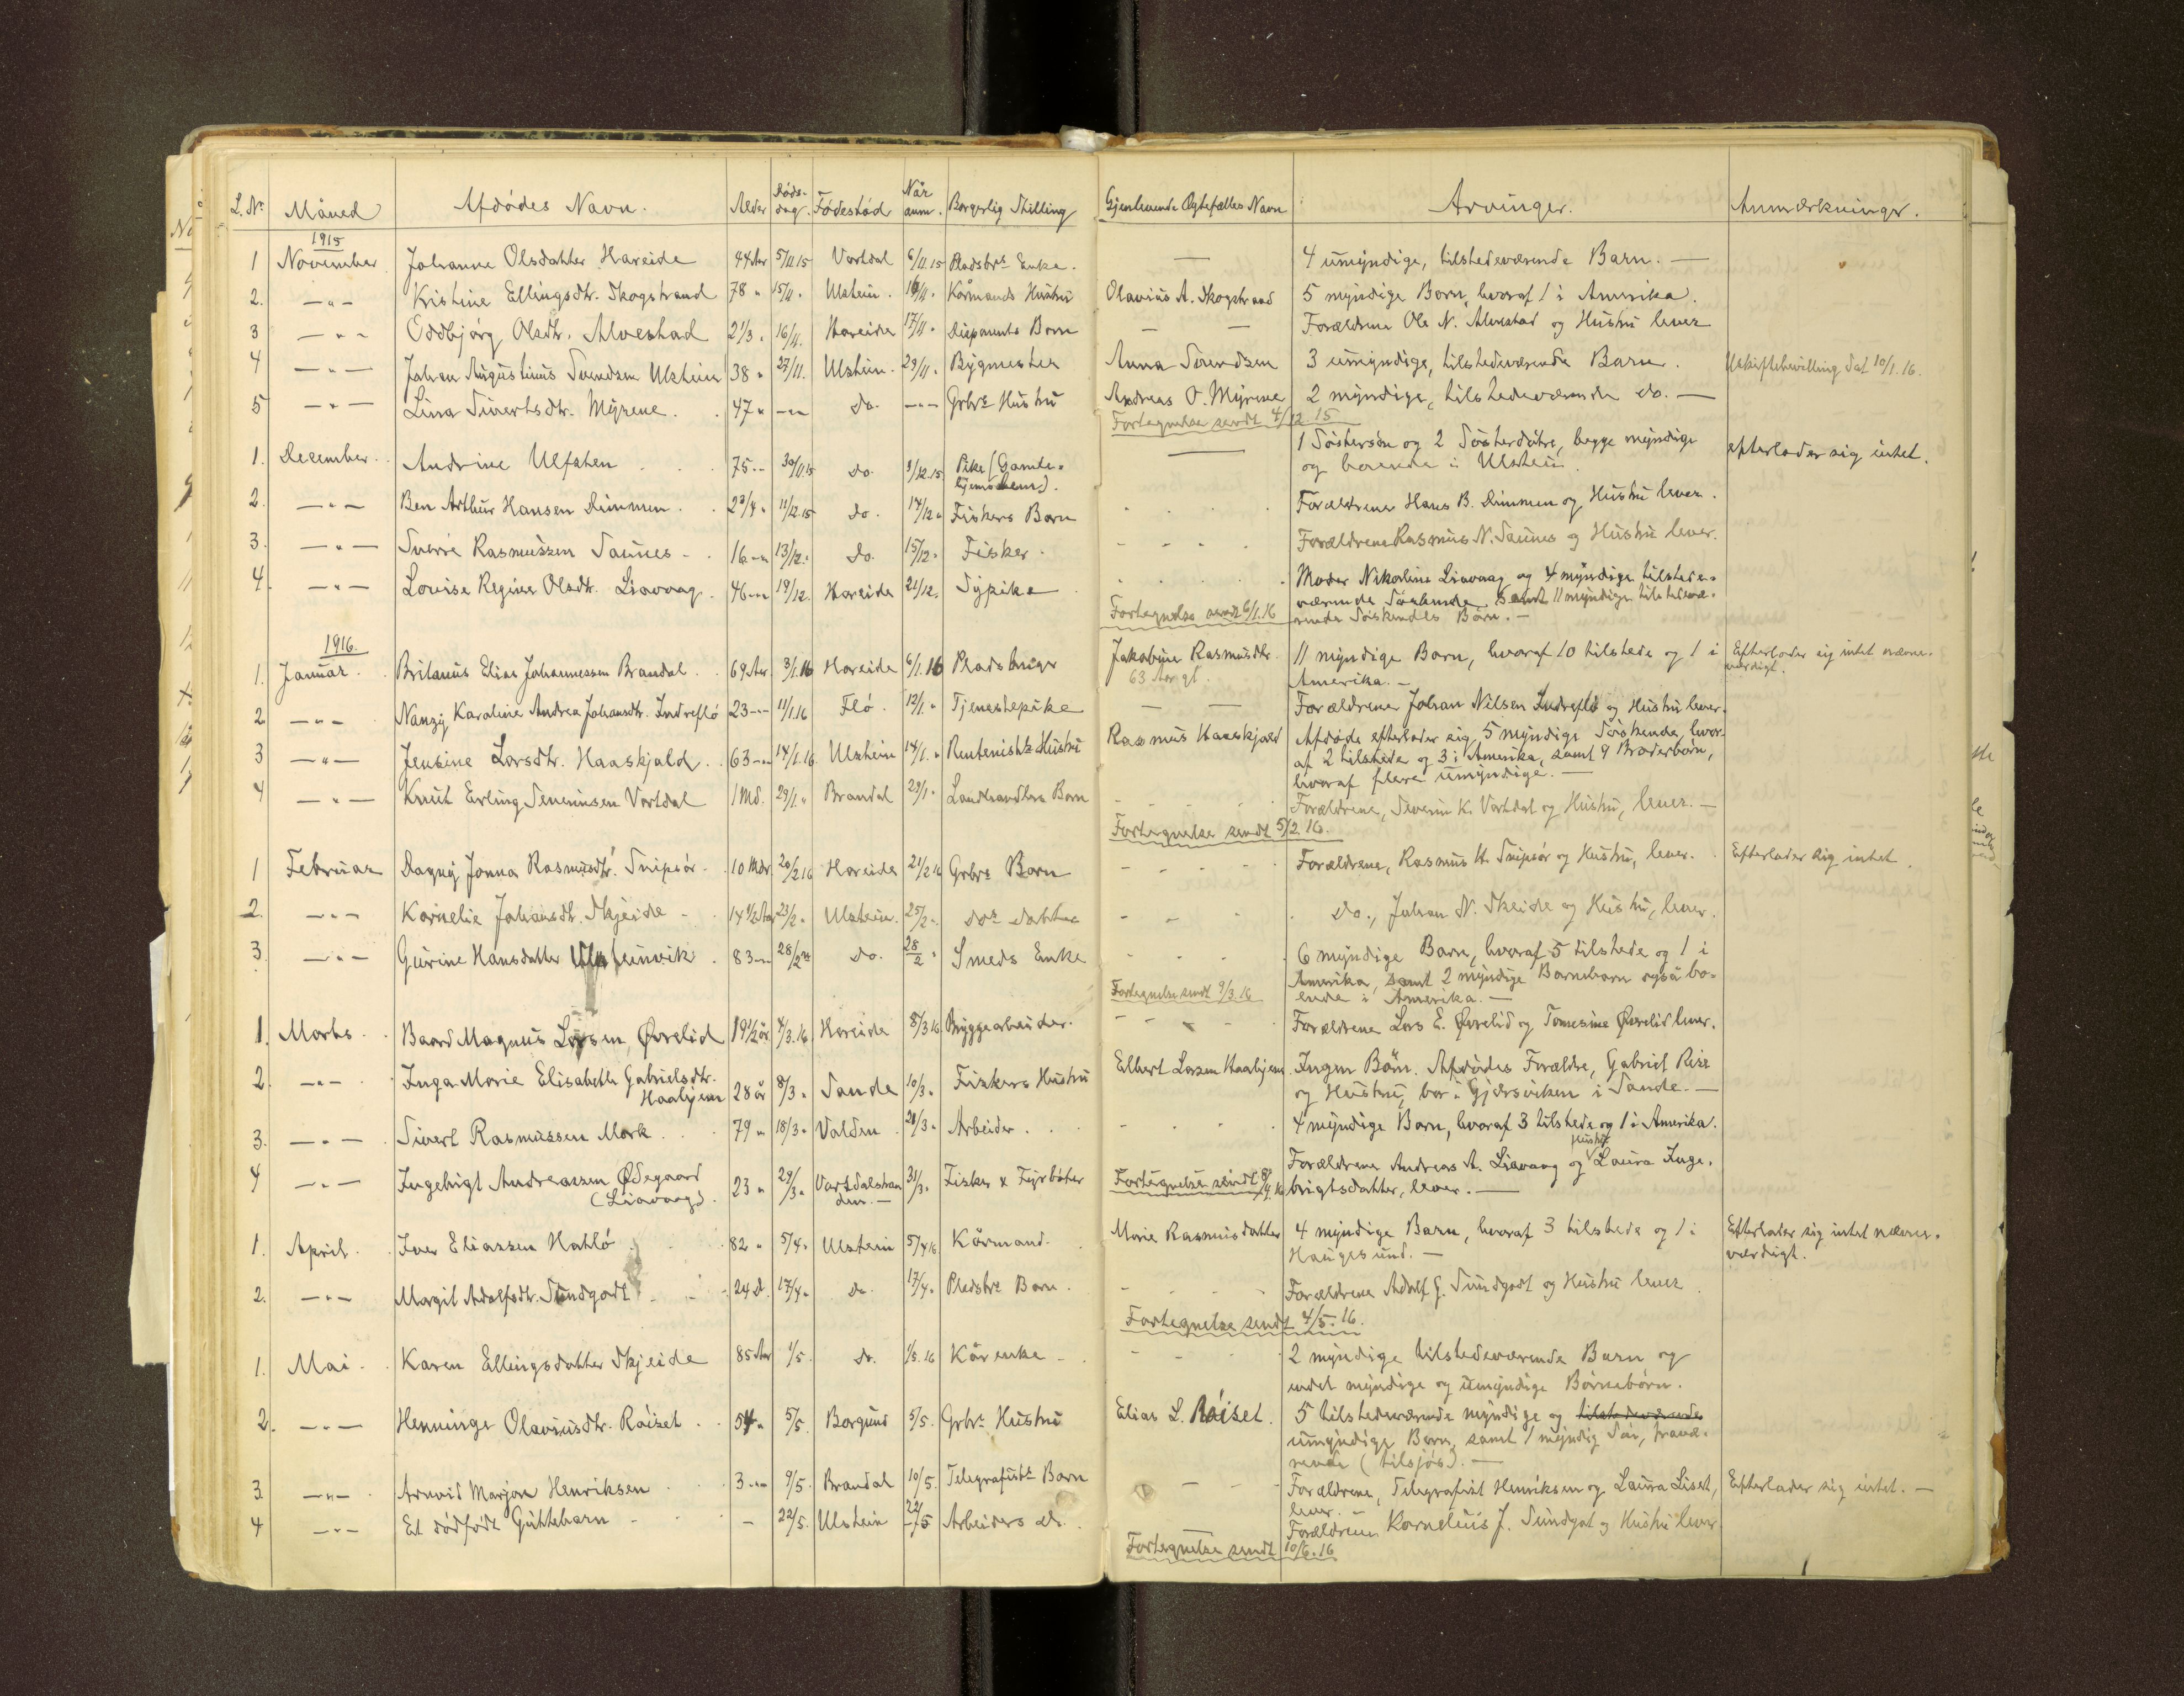 L. Nr. Måned Afdødes Navn. Alder Dødsdag. Fødested Når anm. Borgerlig Stilling Gjenlevende Ægtefælles Navn Arvinger. Anmærkninger.
1915
1 November Johanne Olsdatter Hareide 44 Aar 5/11.15 Vartdal 6/11.15 Pladsbrs Enke. — 4 umyndige, tilstedeværende Barn. —
2. —"— Kristine Ellingsdtr. Skogstrand 78 " 15/11. Ulstein. 16/11. Kårmands Hustru Olavius A. Skogstrand 5 myndige Born, hvoraf 1 i Amerika.
3 —"— Oddbjørg Olsdtr. Alvestad 2 1/3 " 16/11. Hareide 17/11 " Disponents Barn — — Forældrene Ole N. Alvestad og Hustru lever
4 —"— Johan Augustinus Svendsen Ulstein 38 " 27/11. Ulstein. 29/11 " Bygmester Anna Svendsen 3 umyndige, tilstedeværende Barn. Uskiftebevilling dat 10/1.16.
5 —"— Lina Sivertsdtr. Myrene. 47 " —"— do. —"— Grbrs Hustru Andreas O. Myrene 2 myndige, tilstedeværende do. —
Fortegnelse sendt 4/12 15
1. December. Andrine Ulfsten 75 -"- 30/11.15 do. 3/12.15 Pike (Gamle- — 1 Søstersøn og 2 Søsterdøtre, begge myndige efterlader sig intet.
hjemshem). og boende i Ulstein.
2. —"— Ben Arthur Hansen Dimmen. 2 3/4 " 11/12.15 do. 14/12 " Fiskers Barn Forældrene Hans B. Dimmen og Hustru lever.
3. —"— Sverre Rasmussen Saunes - 16 -"- 13/12. do. 15/12. Fisker. Forældrene Rasmus N. Saunes og Hustru lever.
4. —"— Louise Regine Olsdtr. Liavaag. 46 -"- 19/12. Hareide 21/12. Sypike Moder Nikoline Liavaag og 4 myndige tilstede-
værende Søskende, samt 11 myndige tilstedevæ-
Fortegnelse sendt 6/1.16 rende Søskendes Børn. —
1916.
1. Januar. Britanus Elias Johannessen Brandal 69 Aar. 3/1.16 Hareide 6/1.16 Pladsbruger Jakobine Rasmusdtr. 11 myndige Barn, hvoraf 10 tilstede og 1 i Efterlader sig intet nævne-
63 Aar gl. Amerika. — værdigt.
2 —"— Nanzy Karoline Andrea Johansdtr. Indreflø 23 -"- 11/1.16 Flø. 12/1. " Tjenestepike — — Forældrene Johan Nilsen Indreflø og Hustru lever.
3 —"— Jensine Larsdtr. Haaskjold. 63 -"- 14/1.16. Ulstein 14/1. " Rentenists Hustru Rasmus Haaskjold Afdøde efterlader sig 5 myndige Søskende, hvor-
af 2 tilstede og 3 i Amerika, samt 9 Broderbørn,
hvoraf flere umyndige. —
4 —"— Knut Erling Severinsen Vartdal 1 Md. 29/1. " Brandal 29/1 " Landhandlers Barn Forældrene, Severin K. Vartdal og Hustru, lever. —
Fortegnelse sendt 5/2.16.
1 Februar Dagny Jonna Rasmusdtr. Snipsør. 10 Mdr. 20/2.16 Hareide 21/2.16 Grbrs Barn Forældrene, Rasmus H. Snipsør og Hustru, lever. Efterlader sig intet.
2. —"— Kornelie Johansdtr. Skjeide - 14 1/2 Aar 23/2 " Ulstein. 25/2 " dos datter do., Johan N. Skeide og Hustru, lever.
3. —"— Gurine Hansdatter Ulsteinvik. 83 -"- 28/2 do. 28/2 " Smeds Enke 6 myndige Barn, hvoraf 5 tilstede og 1 i
Amerika, samt 2 myndige Barnebarn også bo-
Fortegnelse sendt 9/3.16 ende i Amerika. —
1. Marts. Baard Magnus Larsen Øvrelid 19 1/2 år 4/3.16 Hareide 8/3.16 Bryggearbeider. Forældrene Lars E. Øvrelid og Tomesine Øvrelid lever.
2. —"— Inga Marie Elisabeth Gabrielsdtr. Haahjem 28 år 8/3 " Sande 10/3 " Fiskers Hustru Elbert Larsen Haahjem. Ingen Børn. Afdødes Forældre, Gabriel Rise
og Hustru, bor i Gjærsviken i Sande. —
3. —"— Sivert Rasmussen Mork 79 " 18/3 " Valden 20/3 " Arbeider. 4 myndige Born, hvoraf 3 tilstede og 1 i Amerika.
4 —"— Ingebrigt Andreassen Ødegaard 23 " 29/3 " Vartdalstran 31/3 " Fisker & Fyrbøter Forældrene Andreas A. Liavaag og Hustru Laura Inge-
(Liavaag). den. — Fortegnelse sendt 8/4.16 brigtsdatter, lever. —
1. April. Iver Eliassen Hatlø 82 " 5/4 " Ulstein 5/4.16 Kårmand. Marie Rasmusdatter 4 myndige Barn, hvoraf 3 tilstede og 1 i Efterlader sig intet nævne-
Haugesund. — værdigt.
2. —"— Margit Adolfsdtr. Sundgodt 24 D. 17/4 " do. 17/4 " Pladsbrs Barn. Forældrene Adolf G. Sundgodt og Hustru lever
Fortegnelse sendt 4/5.16.
1. Mai. Karen Ellingsdatter Skjeide 85 Aar 1/5. do. 1/5.16 Kårenke - 2 myndige tilstedeværende Barn og
endel myndige og umyndige Børnebørn.
2. —"— Henninge Olaviusdtr. Røiset 54 " 5/5. Borgund 5/5. Grbrs Hustru Elias L. Røiset. 5 tilstedeværende myndige og tilstedeværende
umyndige Born, samt 1 myndig Søn, fravæ-
rende (tilsjøs). —
3. —"— Arnvid Marjon Henriksen 3 -"- 9/5. Brandal 10/5. Telegrafists Barn — Forældrene, Telegrafist Henriksen og Laura Liset, Efterlader sig intet. —
lever. —
4 —"— Et dødfødt Guttebarn - — 22/5. Ulstein 22/5 Arbeiders do. — Forældrene Kornelius J. Sundgot og Hustru lever
Fortegnelse sendt 10/6.16